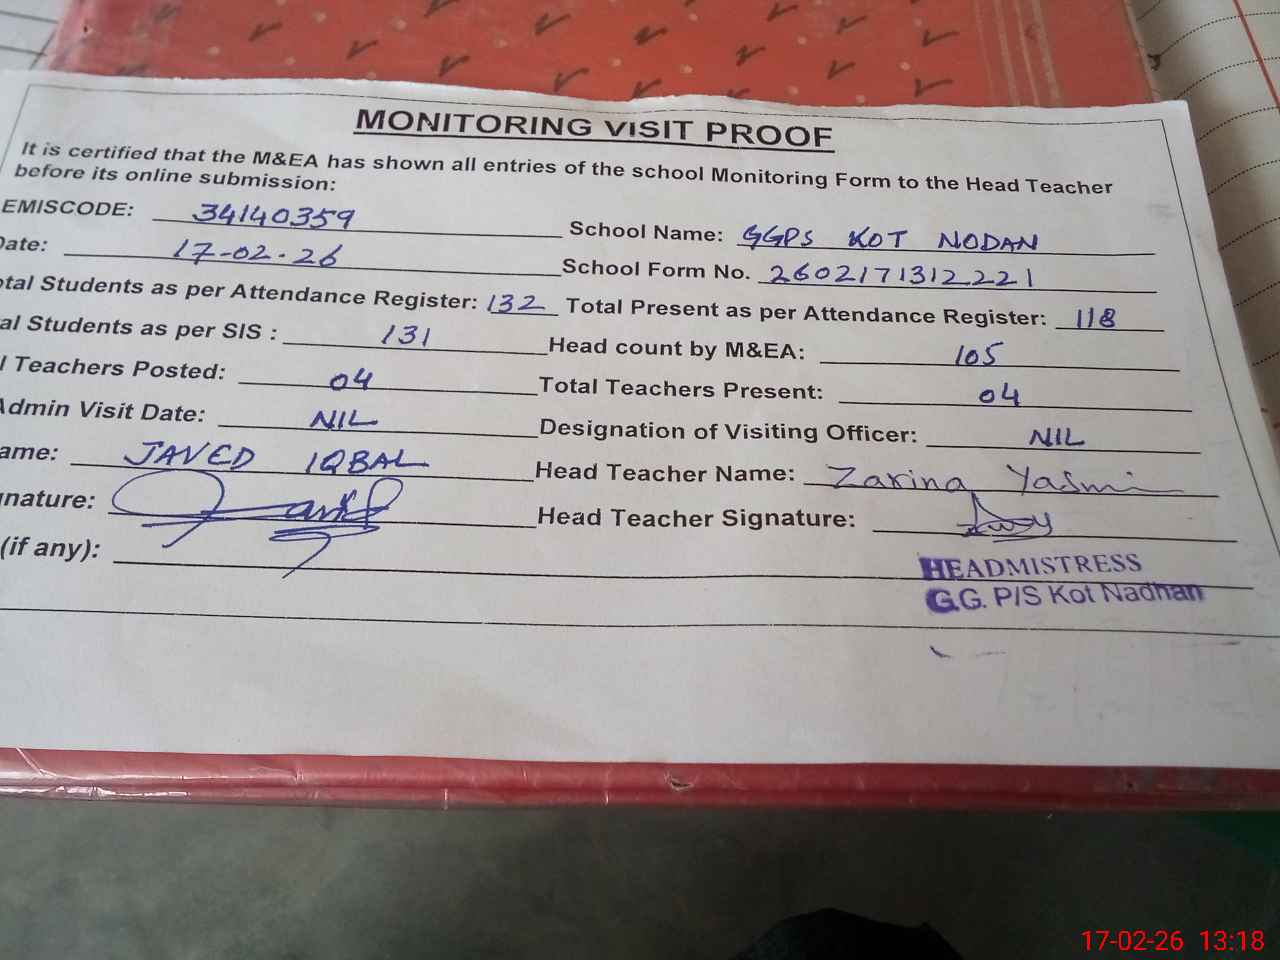 MONITORING VISIT PROOF
It is certified that the M&EA has shown all entries of the school Monitoring Form to the Head Teacher
before its online submission:
EMISCODE: 34140359 School Name: GGPS KOT NODAN
Date: 17-02-26 School Form No. 2602171312221
otal Students as per Attendance Register: 132 Total Present as per Attendance Register: 118
al Students as per SIS : 131 Head count by M&EA: 105
l Teachers Posted: 04 Total Teachers Present: 04
Admin Visit Date: NIL Designation of Visiting Officer: NIL
ame: JAVED IQBAL Head Teacher Name: Zarina Yasmi
nature: Javid Head Teacher Signature:
(if any):
HEADMISTRESS
G.G. P/S Kot Nadhan
17-02-26 13:18